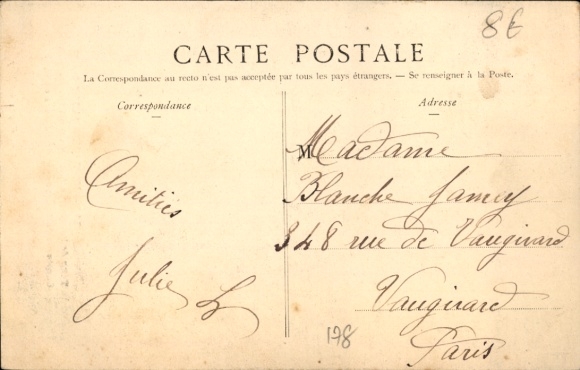 8€
CARTE POSTALE
La Correspondance au recto n'est pas acceptée par tous les pays étrangers. — Se renseigner à la Poste.
Correspondance
Amitiés
Julie L
Adresse
Madame
Blanche Jamey
348 rue de Vaugirard
Vaugirard
Paris
178